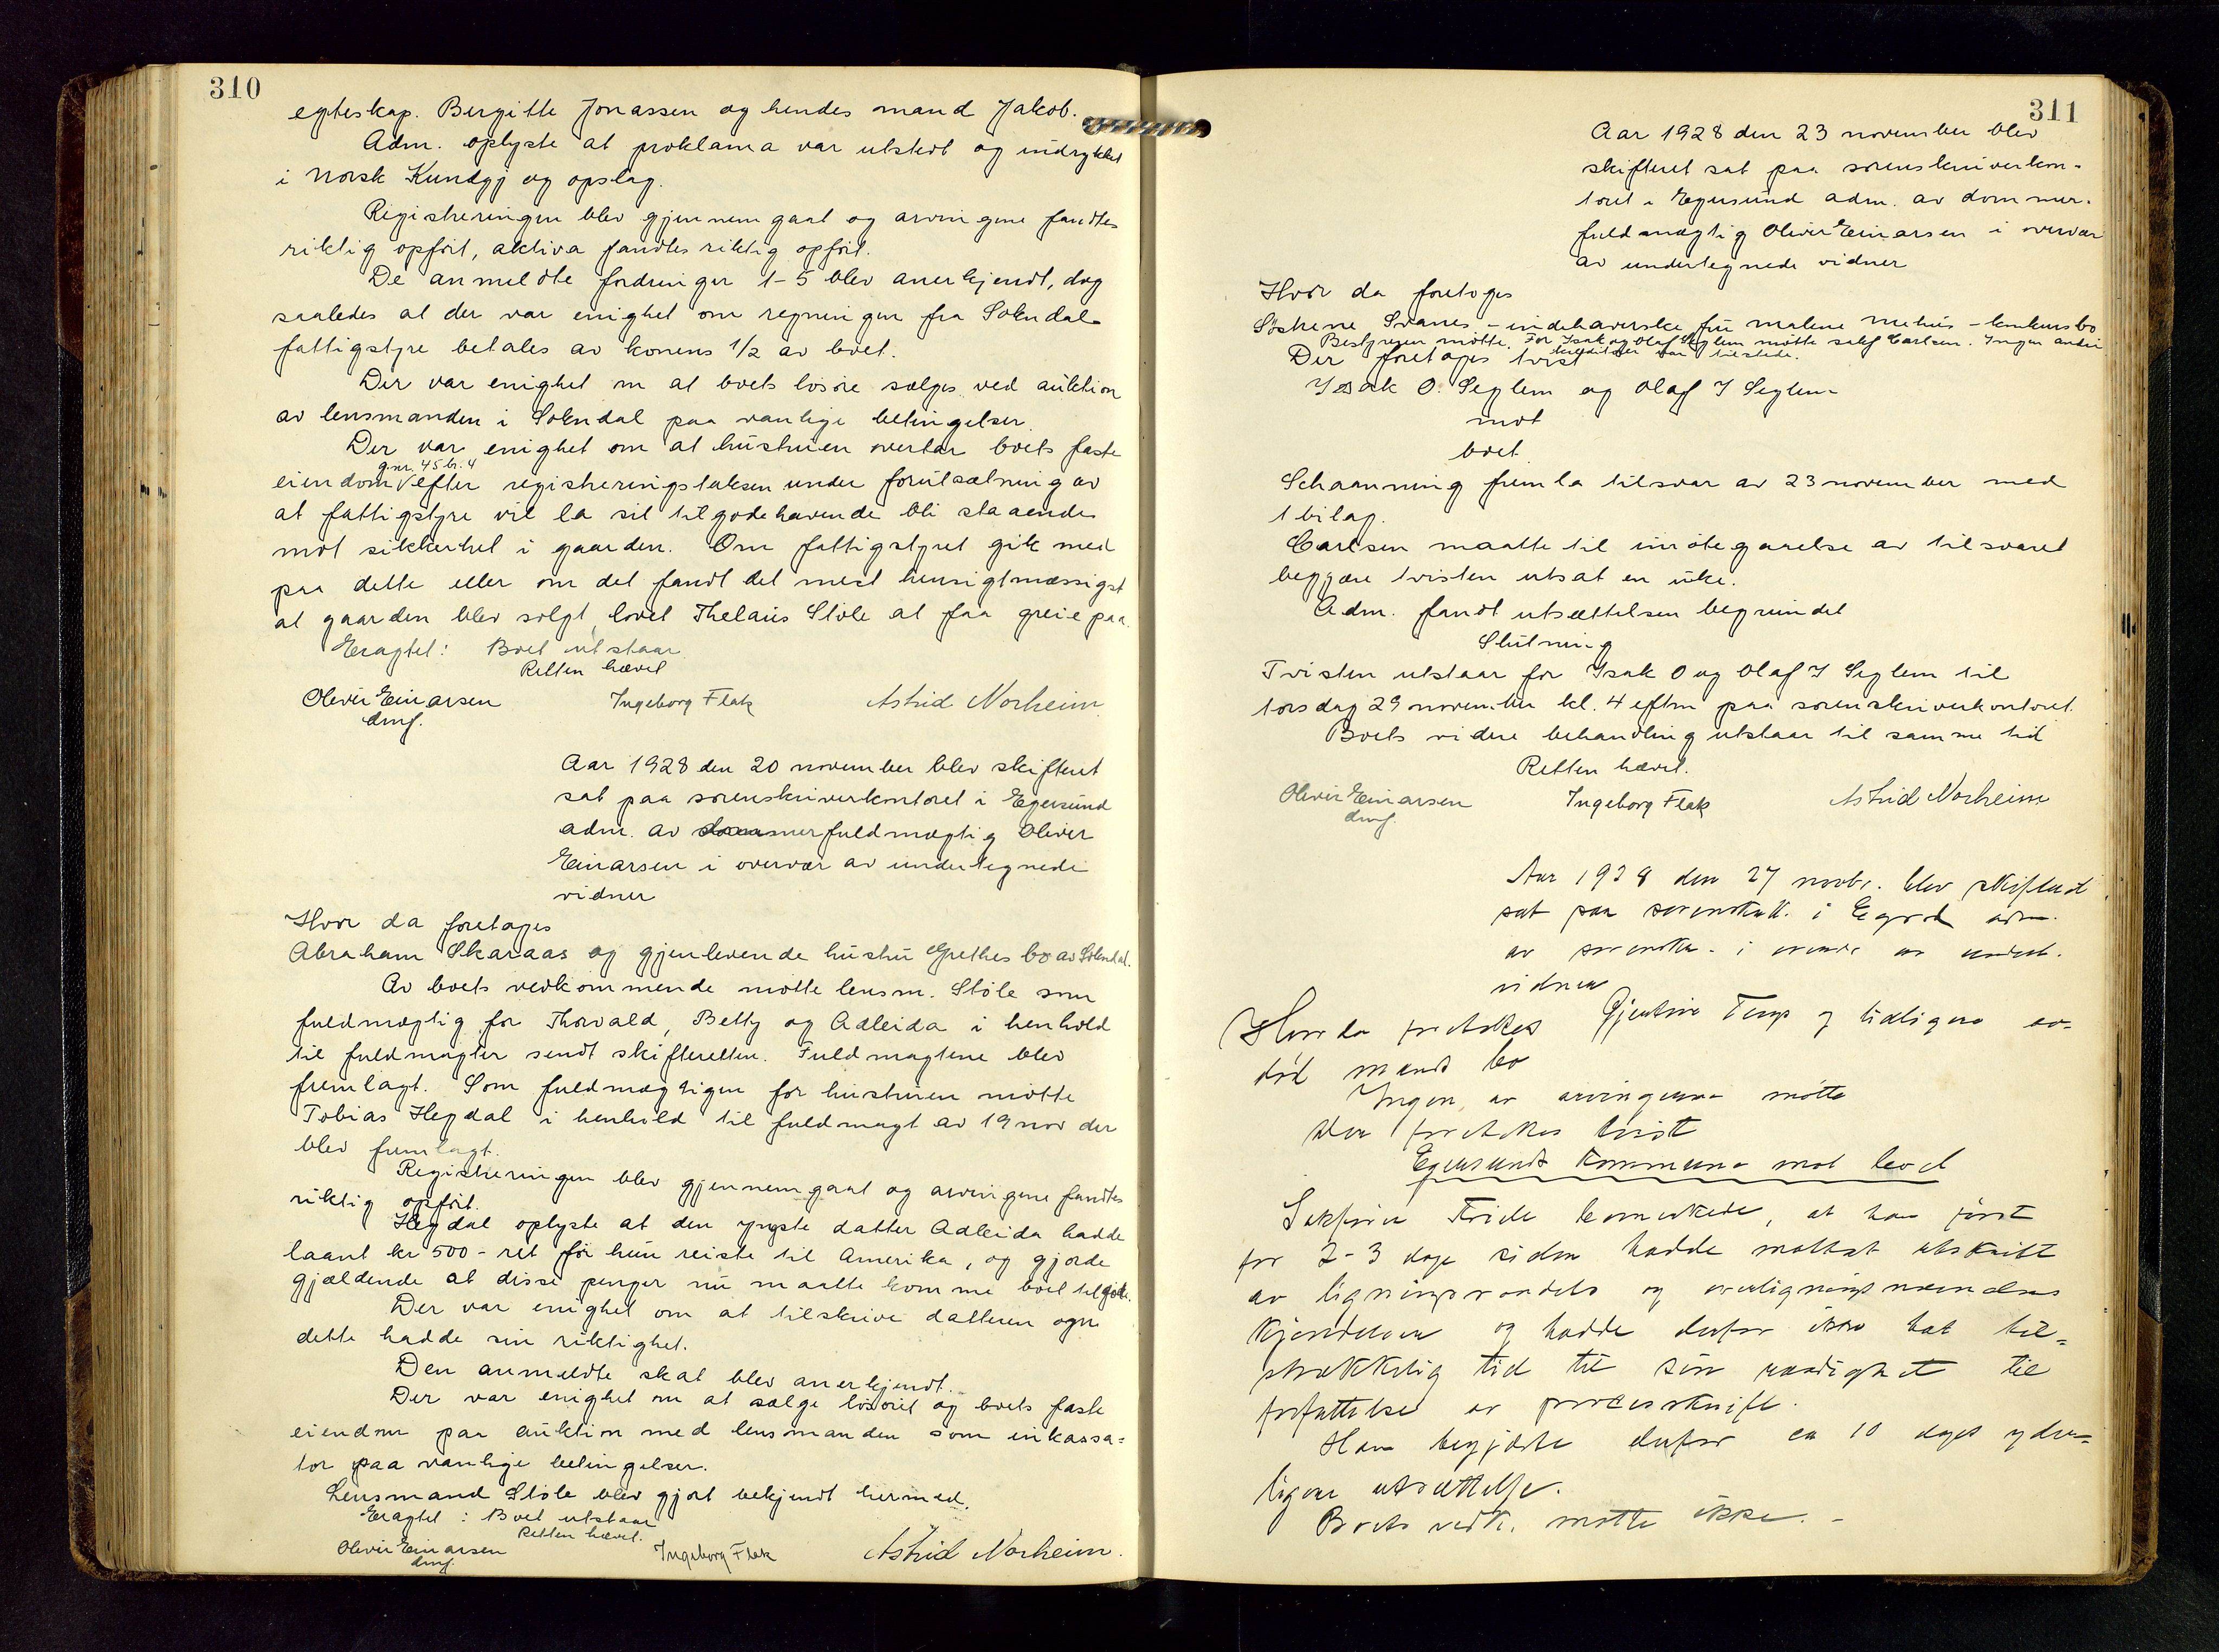 310
egteskap. Bergitte Jonassen og hendes mand Jakob.
Adm. oplyste at proklama var utstedt og indrykket
i Norsk Kundgj og opslag.
Registreringen blev gjennemgaat og arvingene fandtes
riktig opført, aktiva fandtes riktig opført.
De anmeldte fordringer 1-5 blev anerkjendt, dog
saaledes at der var enighet om regningen fra Sokndal
fattigstyre betales av konens 1/2 av boet.
Der var enighet om at boets løsøre sælges ved auktion
av lensmanden i Sokndal paa vanlige betingelser.
Der var enighet om at hustruen overtar boets faste
gnr. 45 br. 4
eiendom efter registreringstaksen under forutsætning av
at fattigstyre vil la sit tilgodehavende bli staaende
mot sikkerhet i gaarden. Om fattigstyret gik med
paa dette eller om det fandt det mest hensigtmæssigst
at gaarden blev solgt, lovet Thelaus Støle at faa greie paa.
Eragtet: Boet utstaar
Retten hævet
Oliver Einarsen Ingeborg Flak Astrid Norheim
dmf.
Aar 1928 den 20 november blev skifteret
sat paa sorenskriverkontoret i Egersund
adm. av dommerfuldmægtig Oliver
Einarsen i overvær av undertegnede
vidner
Hvor da foretoges
Abraham Skaraas og gjenlevende hustru Grethes bo av Sokndal.
Av boets vedkommende møtte lensm. Støle som
fuldmægtig for Thorvald, Betty og Adleida i henhold
til fuldmagter sendt skifteretten. Fuldmagtene blev
fremlagt. Som fuldmægtigen for hustruen møtte
Tobias Hegdal i henhold til fuldmagt av 19 nov der
blev fremlagt.
Registreringen blev gjennemgaat og arvingene fandtes
riktig opført.
Hegdal oplyste at den yngste datter Adleida hadde
laant kr 500- ret før hun reiste til Amerika, og gjorde
gjældende at disse penger nu maatte komme boet tilgode.
Der var enighet om at tilskrive datteren ogn
dette hadde sin riktighet.
Den anmeldte skat blev anerkjendt.
Der var enighet om at sælge løsøret og boets faste
eiendom paa auktion med lensmanden som inkassa=
tor paa vanlige betingelser.
Lensmand Støle blev gjort bekjendt hermed.
Eragtet: Boet utstaar
Retten hævet.
Oliver Einarsen Ingeborg Flak Astrid Norheim.
dmf.
311
Aar 1928 den 23 november blev
skifteret sat paa sorenskriverkon-
toret i Egersund adm. av dommer-
fuldmægtig Oliver Einarsen i overvær
av undertegnede vidner
Hvor da foretoges
Søstrene Svanes - indehaverske fru Malene Mehus - konkursbo
Bestyreren møtte. For Isak og Olaf Seglem møtte sakf Carlsen. Ingen andre
kreditorer var tilstede.
Der foretoges tvist
Isak O. Seglem og Olaf I Seglem
mot
boet.
Schanning fremla tilsvar av 23 november med
1 bilag.
Carlsen maatte til imøtegaaelse av tilsvaret
begjære tvisten utsat en uke.
Adm. fandt utsættelsen begrundet
Slutning
Tvisten utstaar for Isak O og Olaf I Seglem til
torsdag 29 november kl. 4 eftm paa sorenskriverkontoret.
Boets videre behandling utstaar til samme tid
Retten hævet.
Oliver Einarsen Ingeborg Flak Astrid Norheim
dmf.
Aar 1928 den 27 novbr. blev skifteret
sat paa sorenskrk. i Egersd adm.
av sorenskr. i overvær av undert.
vidner
Hvor da foretokes Gjertine Tengs og tidligere av-
død mands bo
Ingen av arvingerne møtte
Der foretokes tvist
Egersunds kommune mot boet
Sakfører bemerkede, at han først
for 2-3 dage siden hadde mottat utskrift
av ligningsraadets og overligningsnemndens
kjendelser og hadde derfor ikke hat til=
strækkelig tid til sin raadighet til
forfattelse av processkrift.
Han begjærte derfor en 10 dages yder=
ligere utsættelse.
Boets vedk. møtte ikke. -